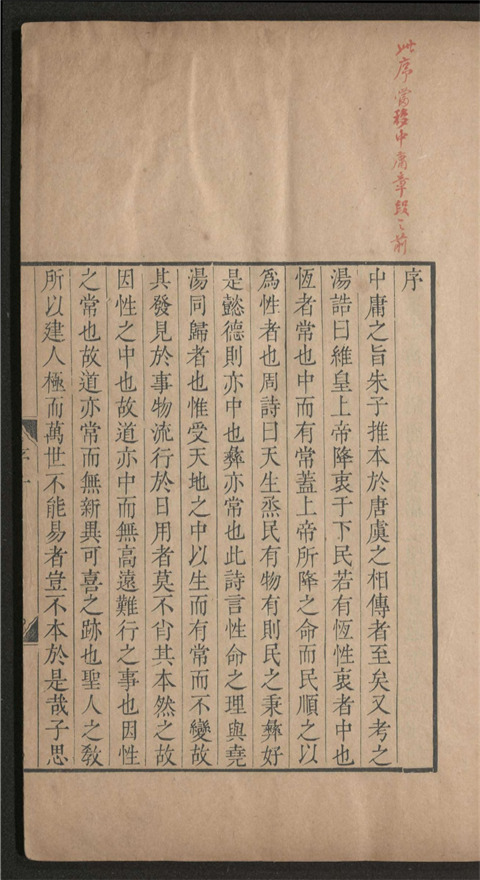 此序當移中庸章段之前
序
中庸之旨朱子推本於唐虞之相傳者至矣又考之
湯誥曰維皇上帝降衷于下民若有恆性衷者中也
恆者常也中而有常蓋上帝所降之命而民順之以
為性者也周詩曰天生烝民有物有則民之秉彝好
是懿德則亦中也彝亦常也此詩言性命之理與堯
湯同歸者也惟受天地之中以生而有常而不變故
其發見於事物流行於日用者莫不肖其本然之故
因性之中也故道亦中而無高遠難行之事也因性
之常也故道亦常而無新異可喜之跡也聖人之敎
所以建人極而萬世不能易者豈不本於是哉子思